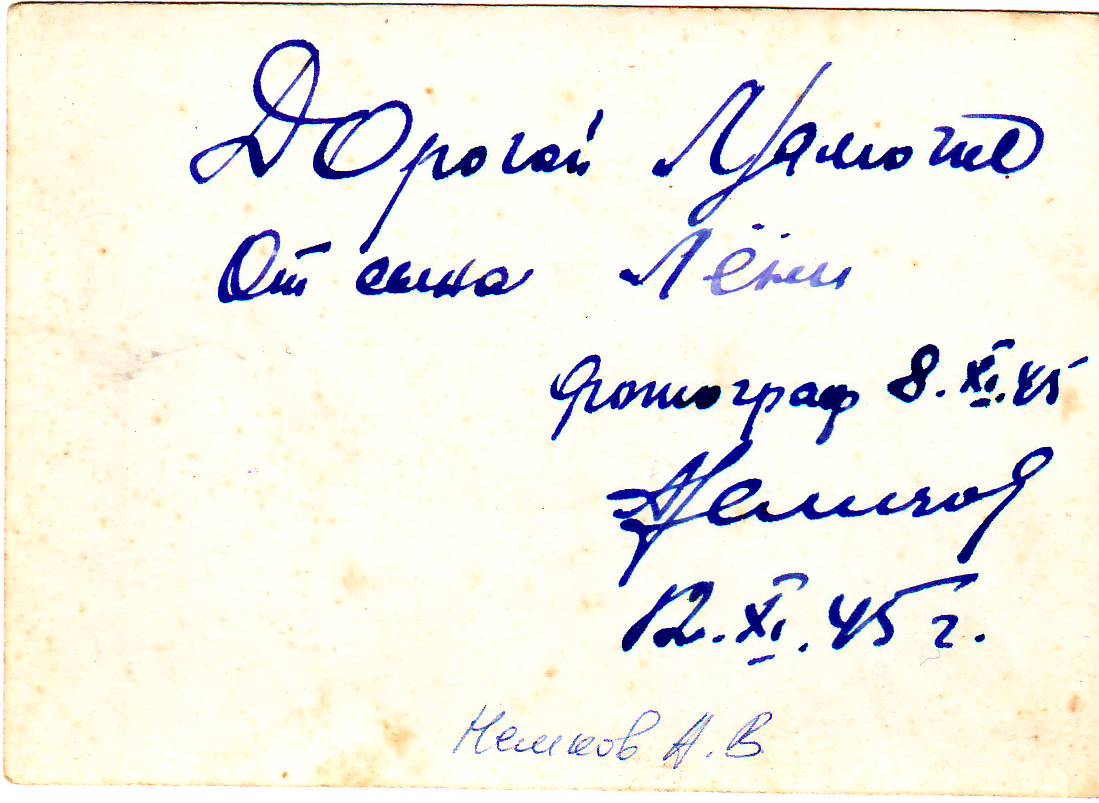 Дорогой Мамоте
От сына Лёни
Фотограф 8.XI.45
Немков
12.XI.45 г.
Немков А.В